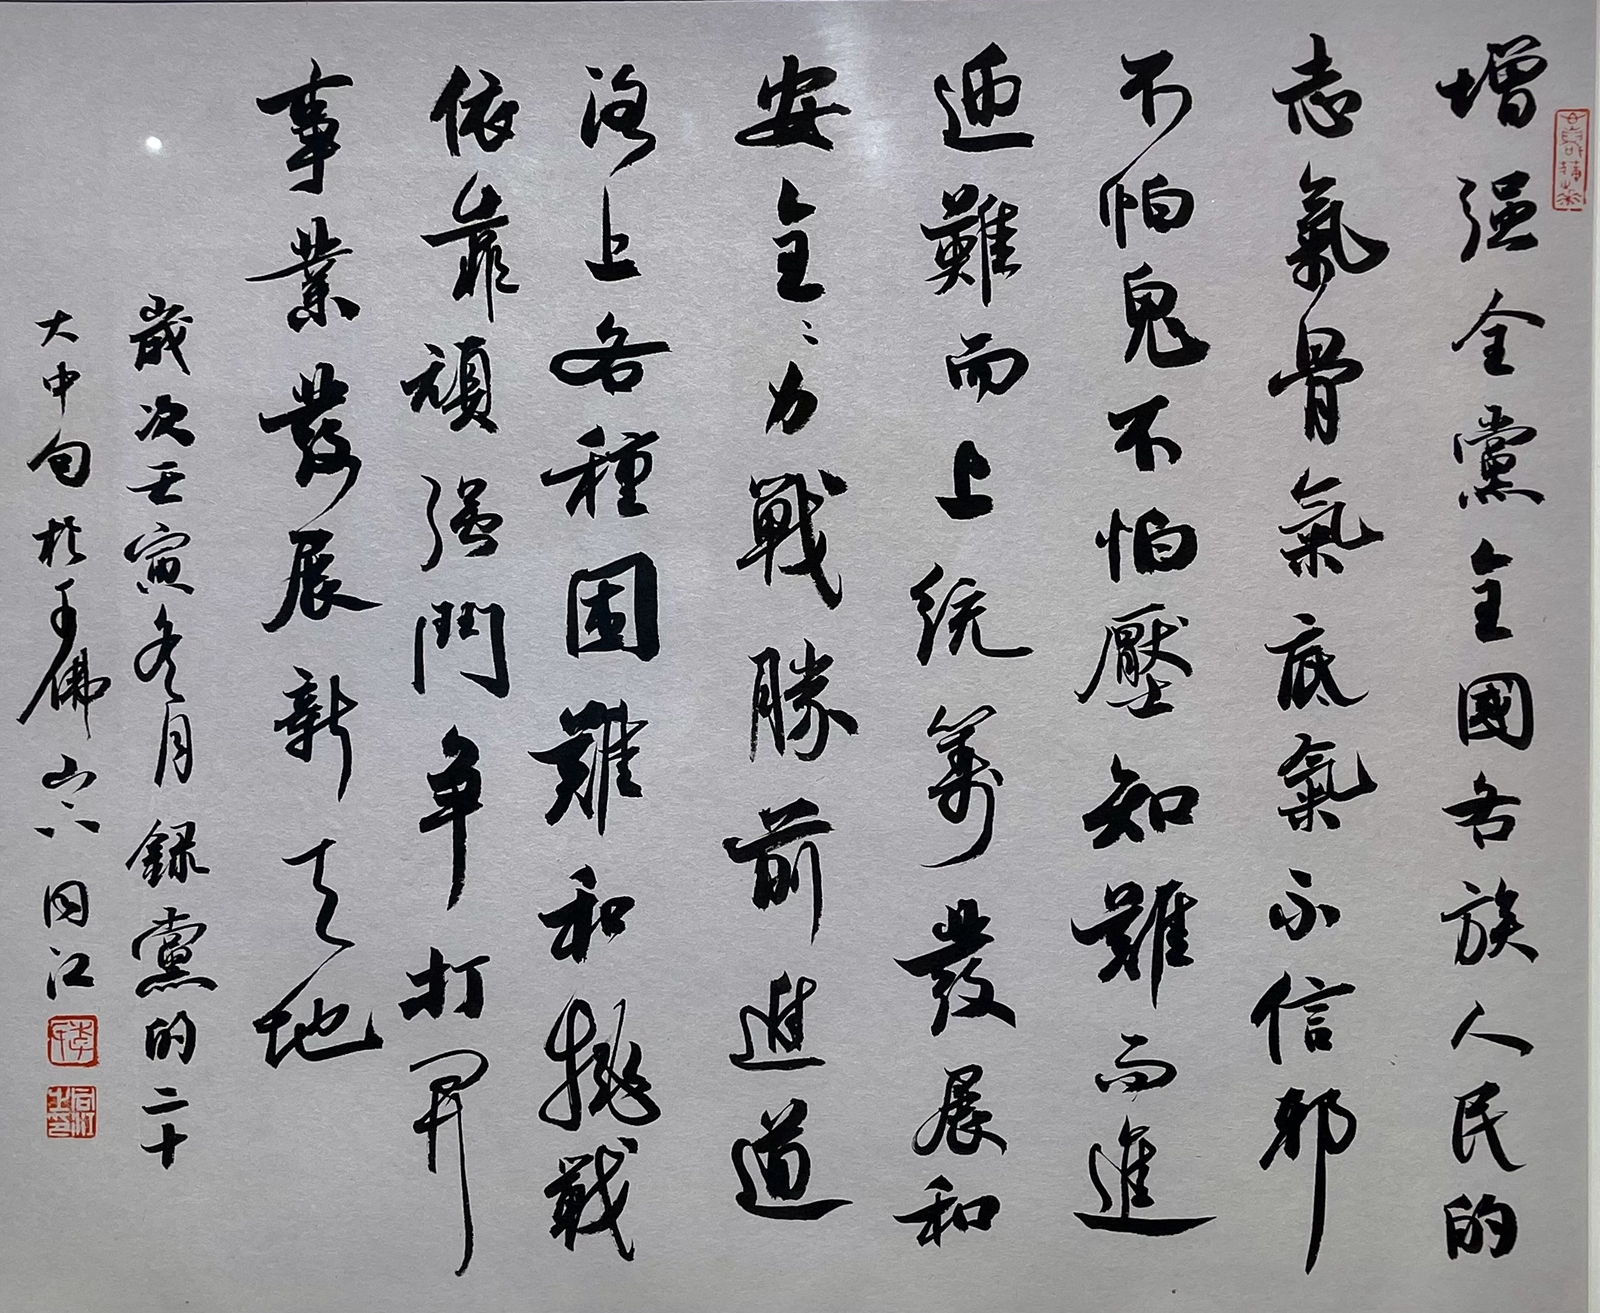 增强全黨全國各族人民的
志氣骨氣氣底氣不信邪
不怕鬼不怕壓知難而進
迎難而上统筹發展和
安全全力戰勝前進道
路上各種困難和挑戰
依靠頑强鬥争打開
事業發展新天地
歲次壬寅冬月録黨的二十
大中句於千佛山下同江